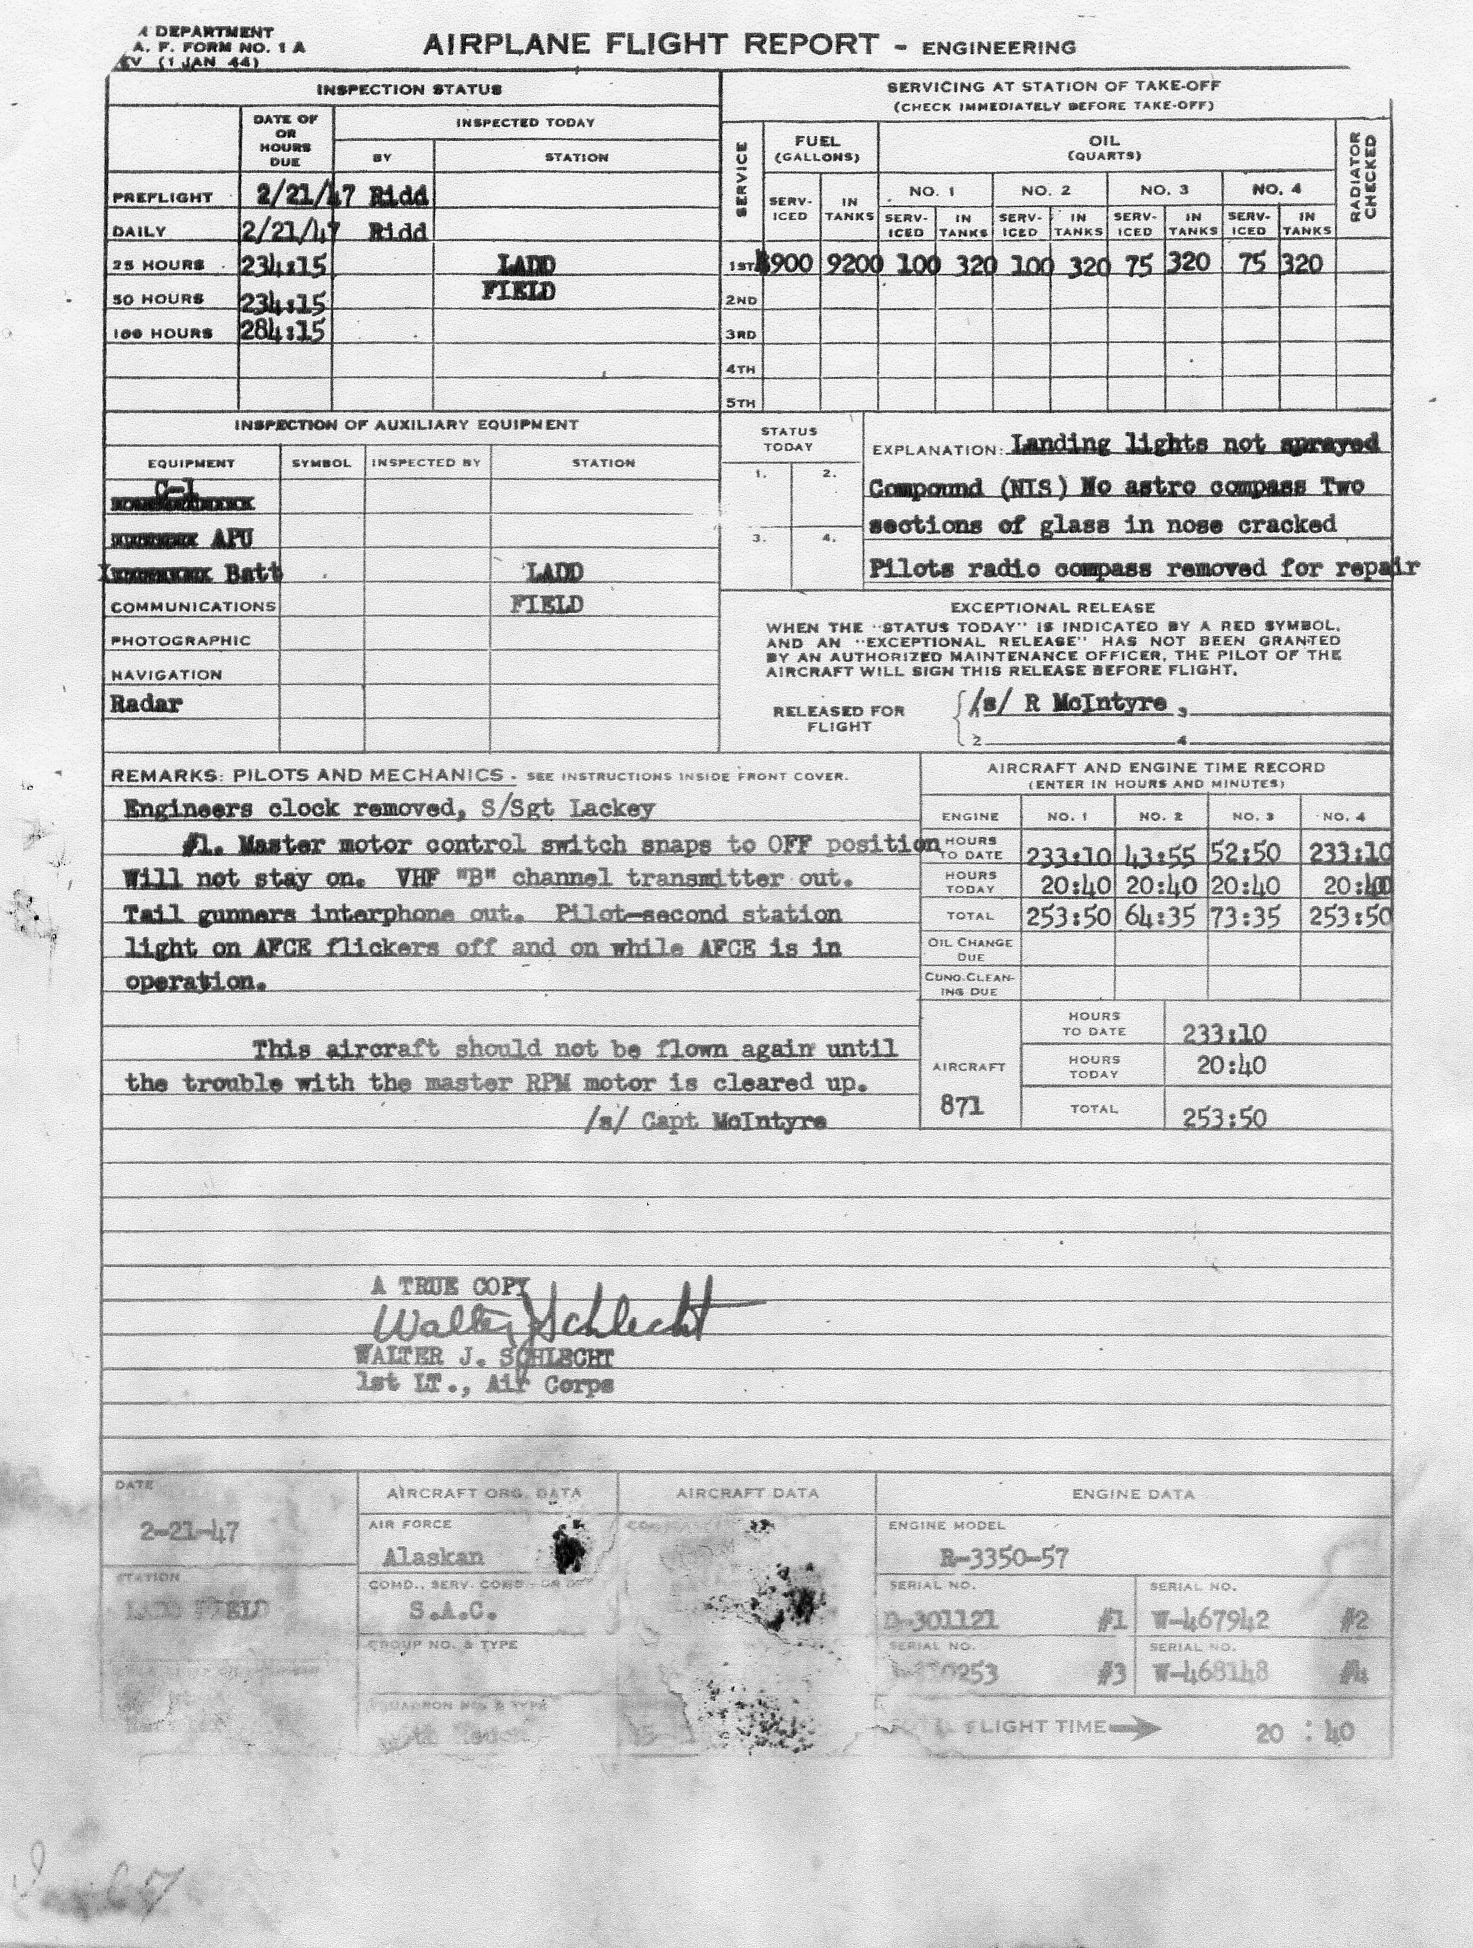 DEPARTMENT
A. F. FORM NO. 1 A
(1 JAN 44)
AIRPLANE FLIGHT REPORT - ENGINEERING
INSPECTION STATUS
DATE OF OR HOURS DUE
INSPECTED TODAY
BY STATION
PREFLIGHT 2/21/47 Ridd
DAILY 2/21/47 Ridd
25 HOURS 234:15 LADD
50 HOURS 234:15 FIELD
100 HOURS 284:15
SERVICING AT STATION OF TAKE-OFF
(CHECK IMMEDIATELY BEFORE TAKE-OFF)
SERVICE
FUEL (GALLONS)
OIL (QUARTS)
RADIATOR CHECKED
NO. 1 NO. 2 NO. 3 NO. 4
SERV-ICED IN TANKS SERV-ICED IN TANKS SERV-ICED IN TANKS SERV-ICED IN TANKS SERV-ICED IN TANKS
1ST 900 9200 100 320 100 320 75 320 75 320
2ND
3RD
4TH
5TH
INSPECTION OF AUXILIARY EQUIPMENT
EQUIPMENT SYMBOL INSPECTED BY STATION
C-1
APU
Batt LADD
COMMUNICATIONS FIELD
PHOTOGRAPHIC
NAVIGATION
Radar
STATUS TODAY
1. 2.
3. 4.
EXPLANATION: Landing lights not sprayed
Compound (NIS) No astro compass Two
sections of glass in nose cracked
Pilots radio compass removed for repair
EXCEPTIONAL RELEASE
WHEN THE "STATUS TODAY" IS INDICATED BY A RED SYMBOL,
AND AN "EXCEPTIONAL RELEASE" HAS NOT BEEN GRANTED
BY AN AUTHORIZED MAINTENANCE OFFICER, THE PILOT OF THE
AIRCRAFT WILL SIGN THIS RELEASE BEFORE FLIGHT.
RELEASED FOR FLIGHT
/s/ R McIntyre 3
2 4
REMARKS: PILOTS AND MECHANICS - SEE INSTRUCTIONS INSIDE FRONT COVER.
Engineers clock removed, S/Sgt Lackey
#1. Master motor control switch snaps to OFF position
Will not stay on. VHF "B" channel transmitter out.
Tail gunners interphone out. Pilot-second station
light on AFCE flickers off and on while AFCE is in
operation.
This aircraft should not be flown again until
the trouble with the master RPM motor is cleared up.
/s/ Capt McIntyre
AIRCRAFT AND ENGINE TIME RECORD
(ENTER IN HOURS AND MINUTES)
ENGINE NO. 1 NO. 2 NO. 3 NO. 4
HOURS TO DATE 233:10 43:55 52:50 233:10
HOURS TODAY 20:40 20:40 20:40 20:40
TOTAL 253:50 64:35 73:35 253:50
OIL CHANGE DUE
CUNO CLEAN-ING DUE
AIRCRAFT 871
HOURS TO DATE 233:10
HOURS TODAY 20:40
TOTAL 253:50
A TRUE COPY
Walter J Schlecht
WALTER J. SCHLECHT
1st LT., Air Corps
DATE
2-21-47
STATION
LADD FIELD
AIRCRAFT ORG. DATA
AIR FORCE
Alaskan
COMD., SERV. COMD.
S.A.C.
GROUP NO. & TYPE
SQUADRON NO. & TYPE
AIRCRAFT DATA
ENGINE DATA
ENGINE MODEL
R-3350-57
SERIAL NO. SERIAL NO.
D-301121 #1 W-467942 #2
SERIAL NO. SERIAL NO.
#3 W-468148 #4
FLIGHT TIME 20 : 40